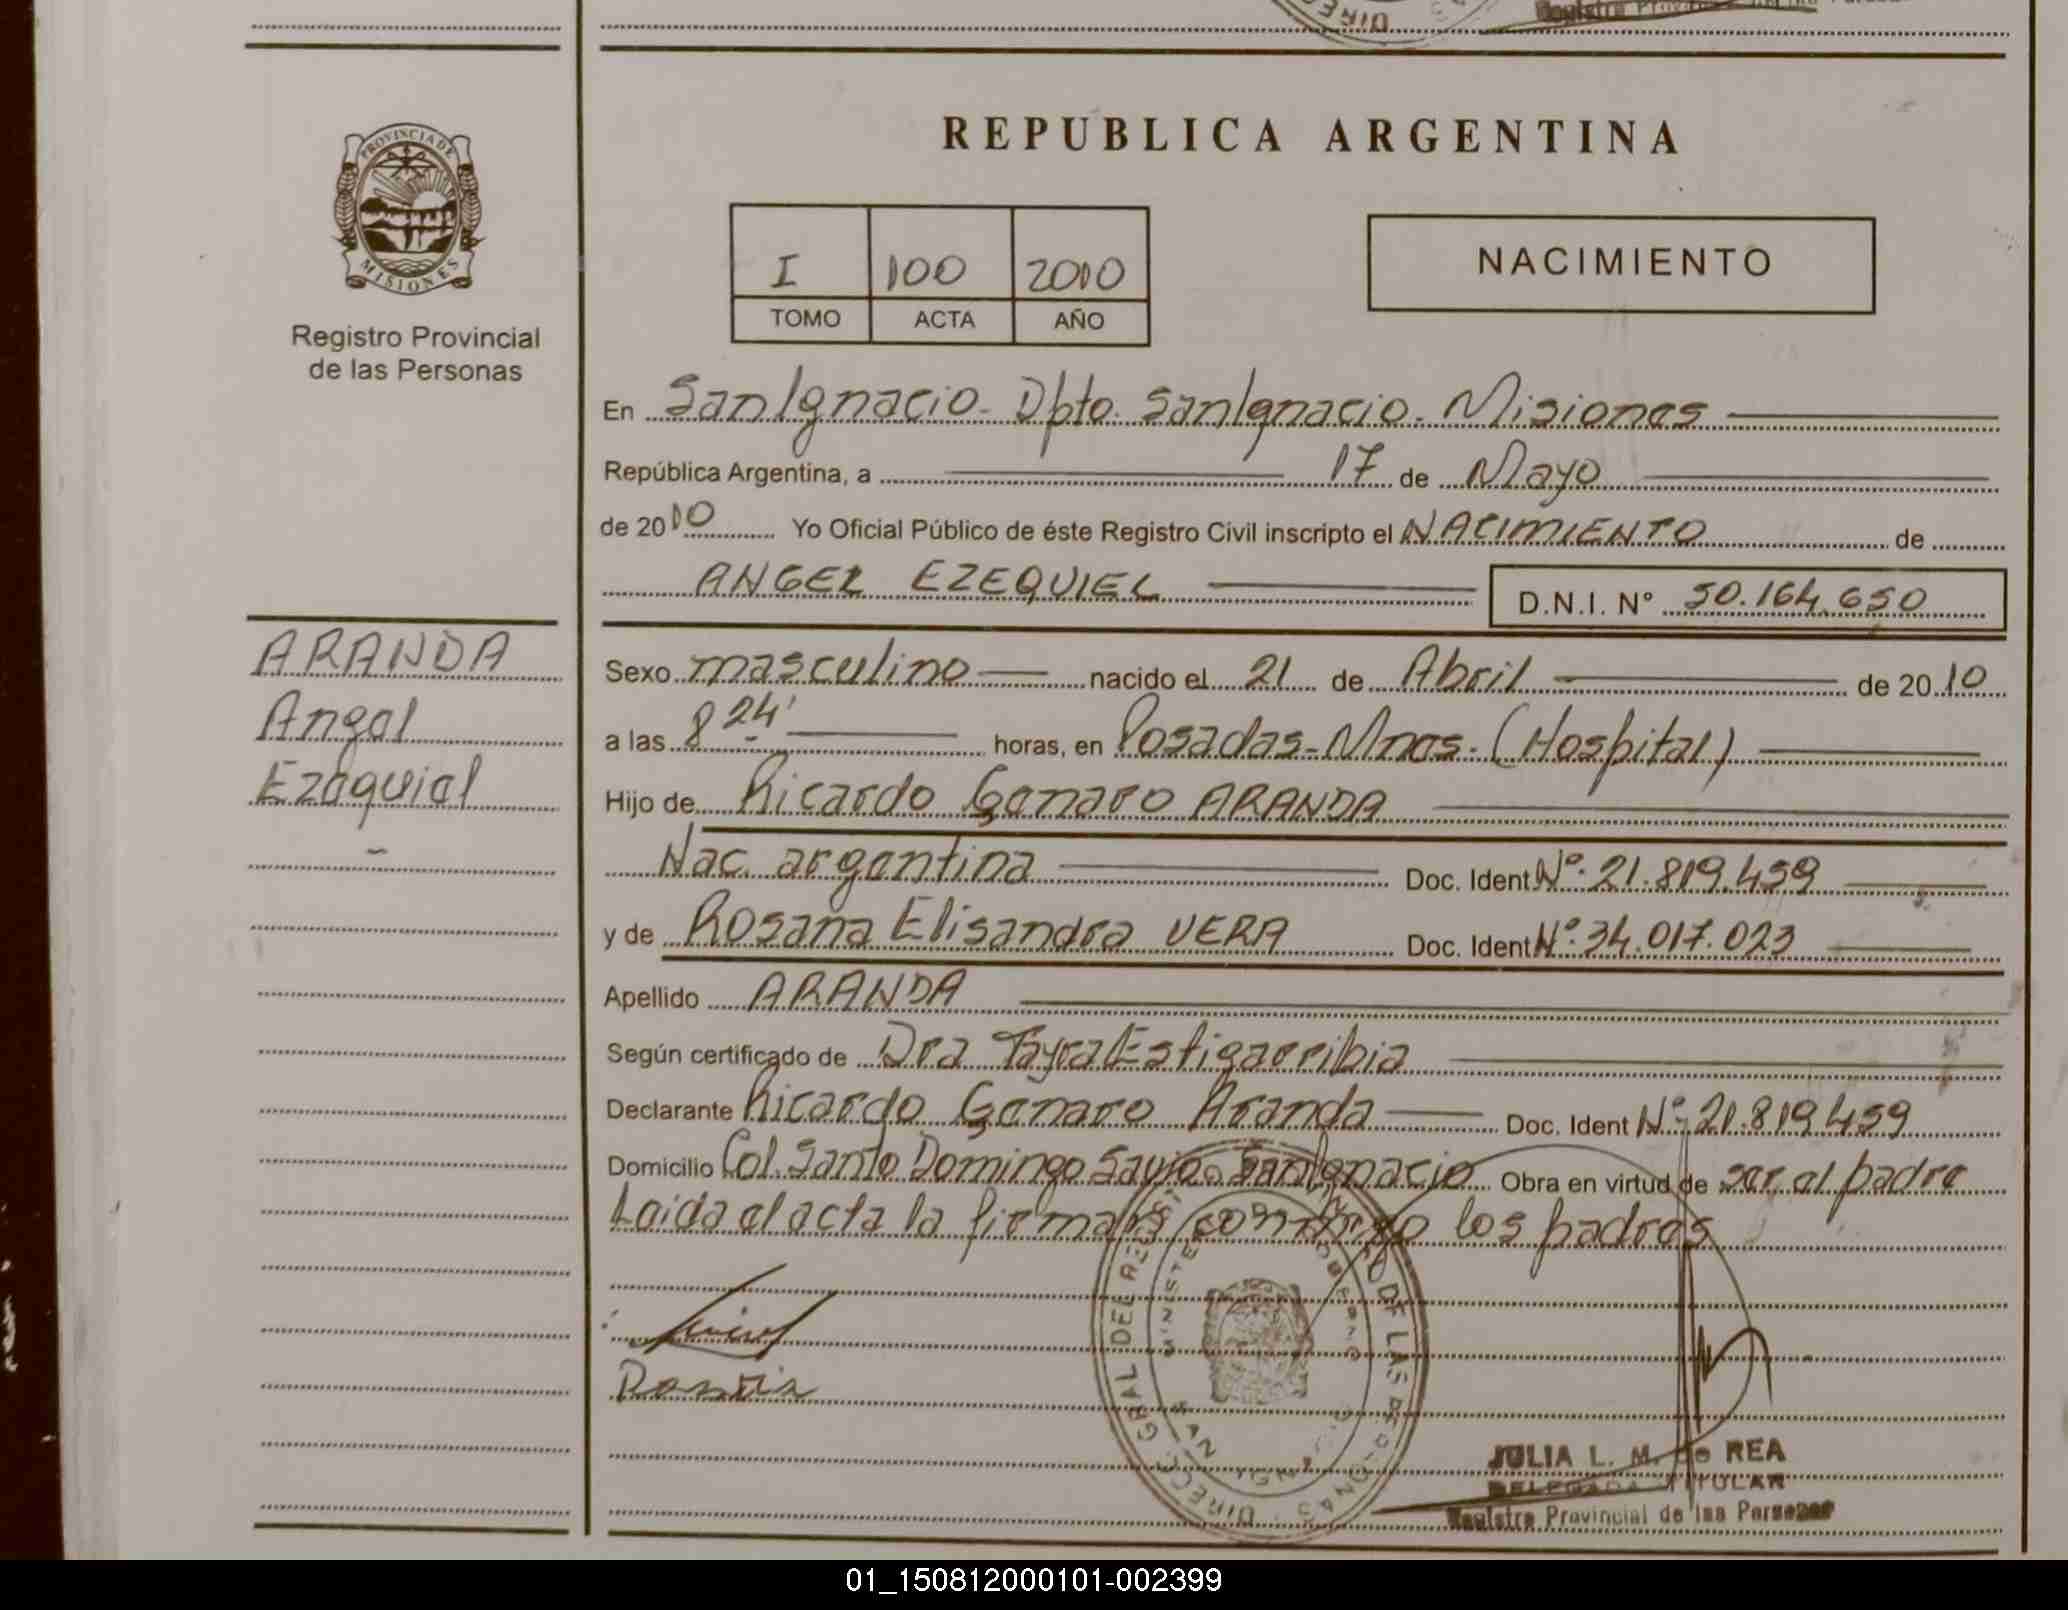 PROVINCIA DE
MISIONES
Registro Provincial
de las Personas
REPUBLICA ARGENTINA
I 100 2010
TOMO ACTA AÑO
NACIMIENTO
En San Ignacio - Dpto. San Ignacio - Misiones
República Argentina, a 17 de Mayo
de 2010 Yo Oficial Público de éste Registro Civil inscripto el NACIMIENTO de
ANGEL EZEQUIEL D.N.I. N° 50.164.650
ARANDA
Angel
Ezequiel
Sexo masculino nacido el 21 de Abril de 2010
a las 8 24' horas, en Posadas - Mnes. (Hospital)
Hijo de Ricardo Genaro ARANDA
Nac. argentina Doc. Ident N°. 21.819.459
y de Rosana Elisandra VERA Doc. Ident N°. 34.017.023
Apellido ARANDA
Según certificado de Dra Tayra Estigarribia
Declarante Ricardo Genaro Aranda Doc. Ident N°. 21.819.459
Domicilio Col. Santo Domingo Savio - San Ignacio Obra en virtud de ser el padre
Leida el acta la firman conmigo los padres
JULIA L. M. de REA
DELEGADA TITULAR
Registro Provincial de las Personas
01_150812000101-002399